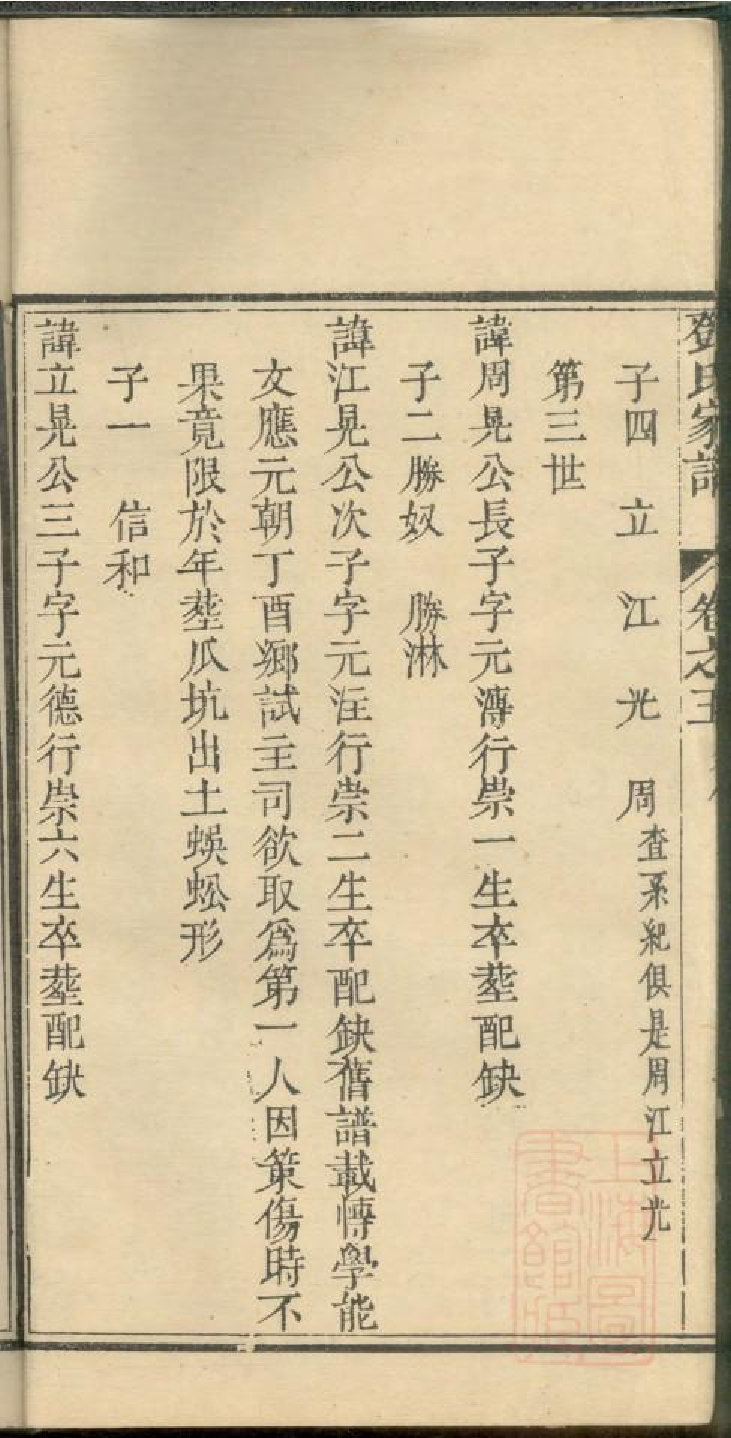 鄧氏家譜 卷之五
子四 立 江 光 周 查系紀俱是周江立光
第三世
諱周晃公長子字元溥行崇一生卒塟配缺
子二勝奴 勝淋
諱江晃公次子字元注行崇二生卒配缺舊譜載博學能
文應元朝丁酉鄉試主司欲取爲第一人因策傷時不
果竟限於年塟瓜坑出土蜈蚣形
子一 信和
諱立晃公三子字元德行崇六生卒塟配缺
上海圖
書館藏